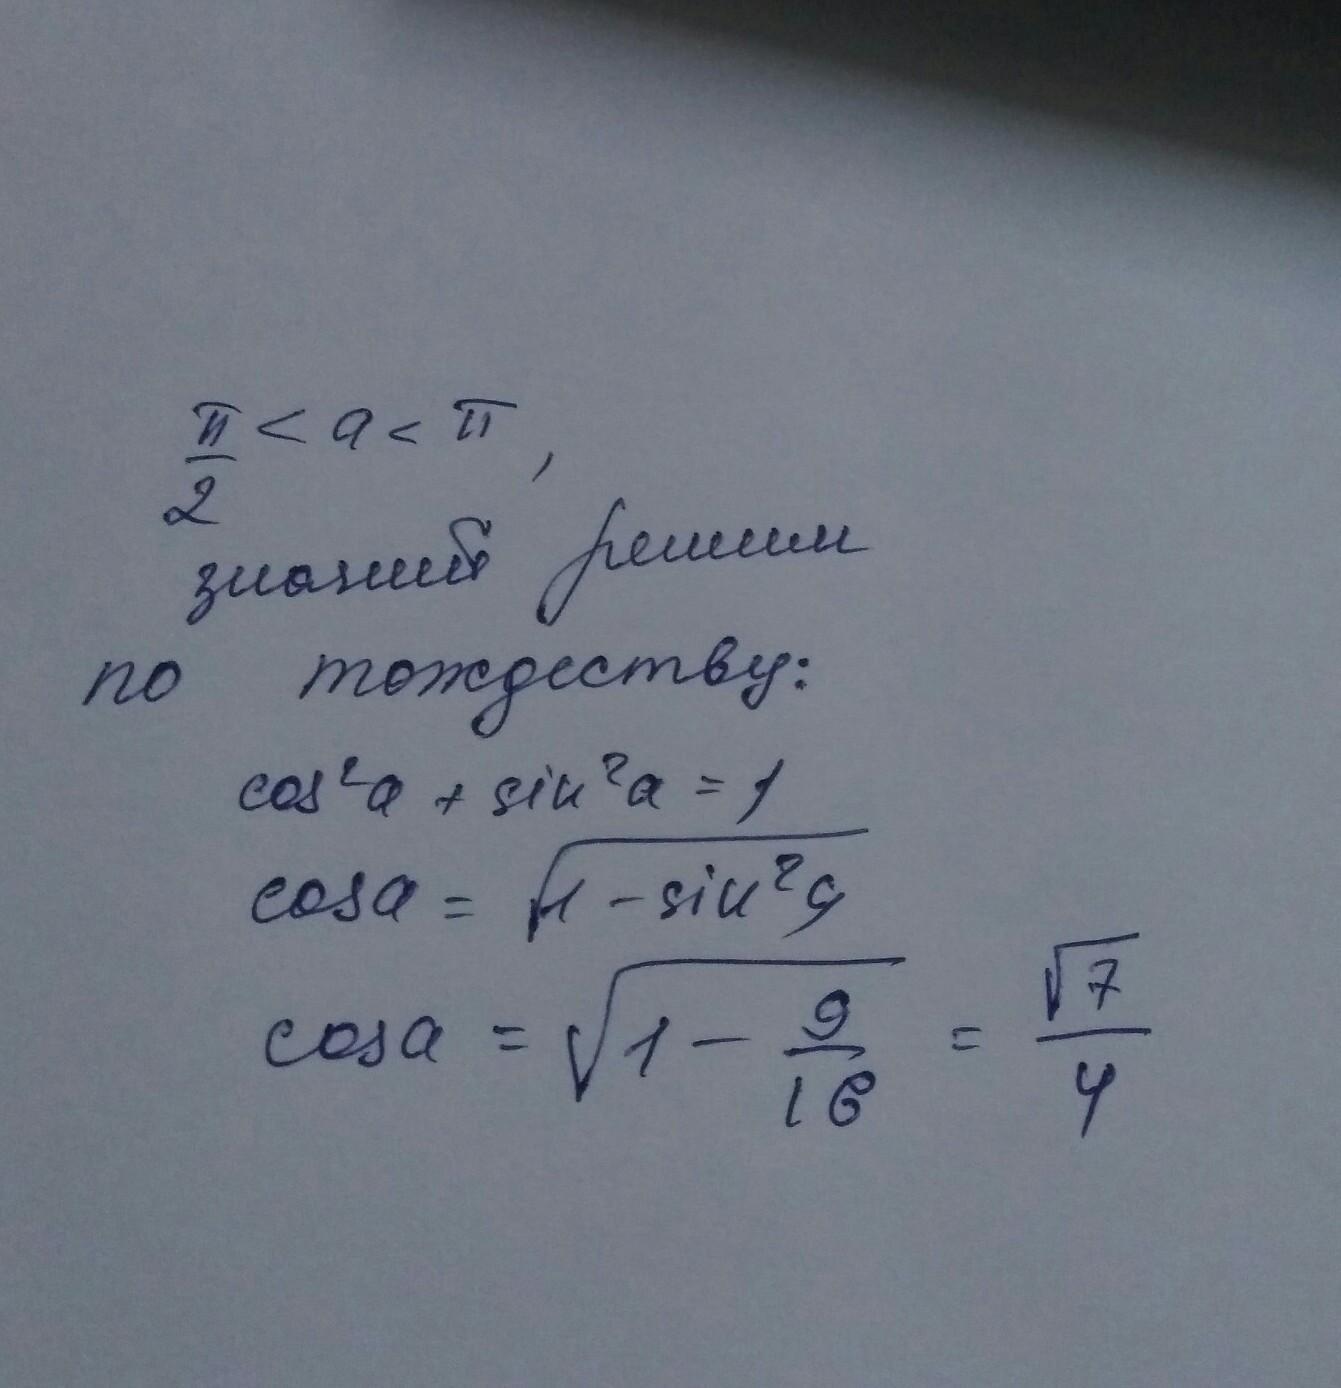 π/2 < a < π,
решим
по тождеству:
cos²a + sin²a = 1
cosa = √(1 - sin²a)
cosa = √(1 - 9/16) = √7/4